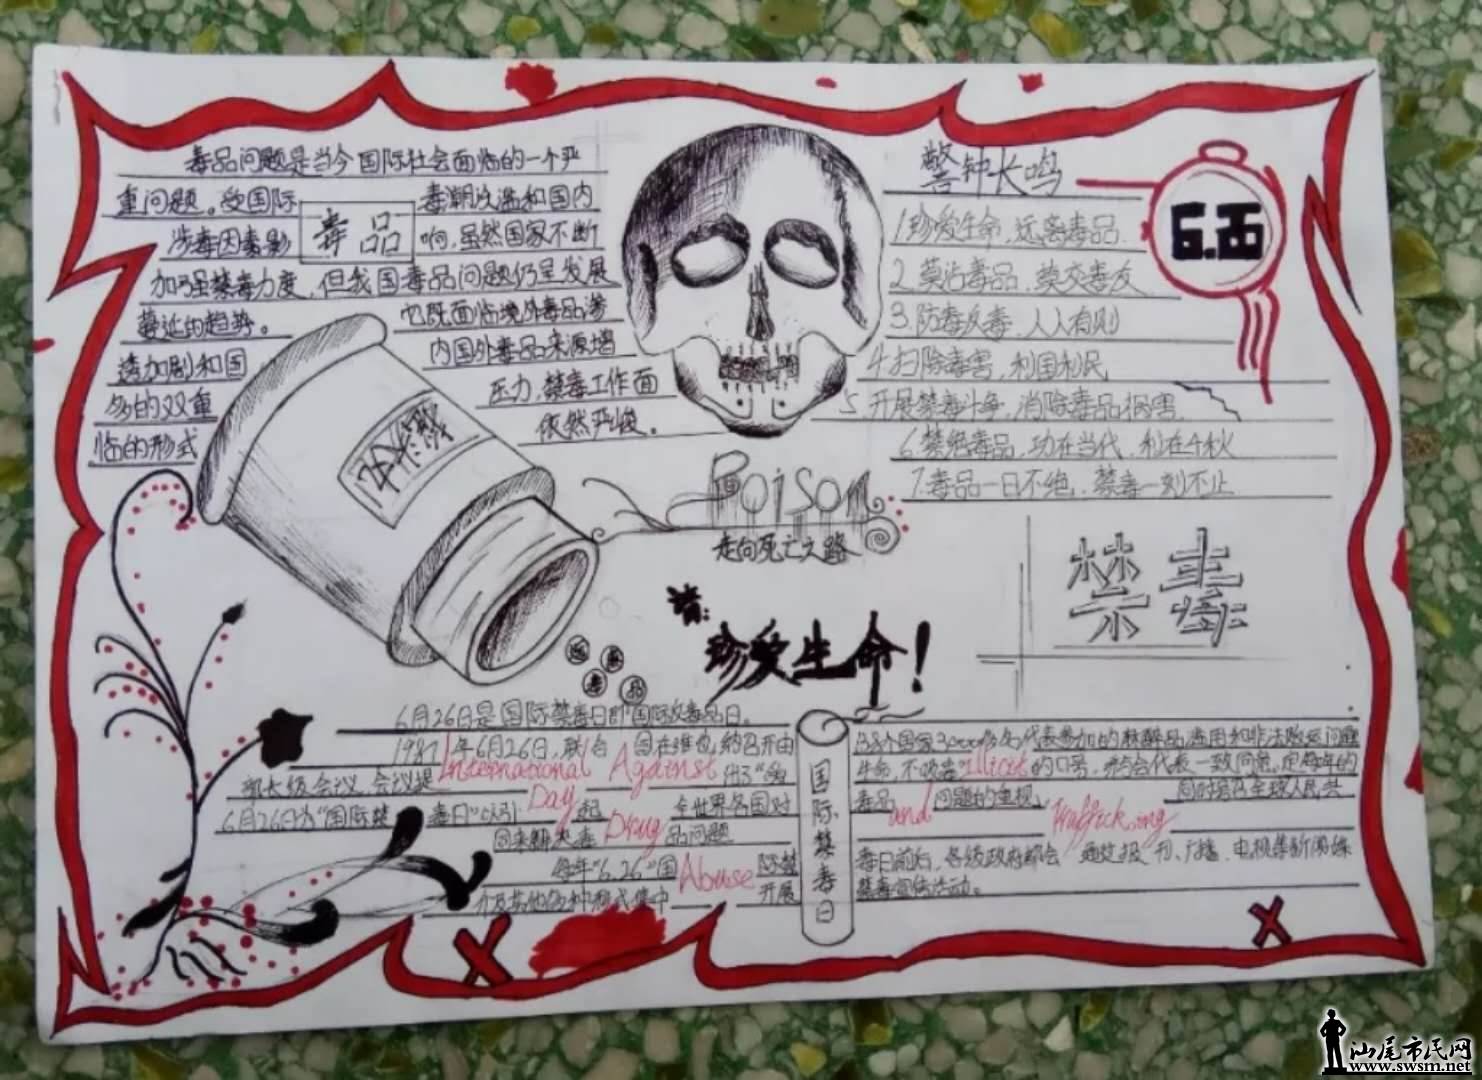 毒品问题是当今国际社会面临的一个严
重问题。受国际
毒潮泛滥和国内
涉毒因素影
毒品
响，虽然国家不断
加强禁毒力度，但我国毒品问题仍呈发展
蔓延的趋势。
它既面临境外毒品渗
透加剧和国
内国外毒品来源增
多的双重
压力，禁毒工作面
临的形式
依然严峻。
警钟长鸣
1.珍爱生命，远离毒品.
2.莫沾毒品，莫交毒友
3.防毒反毒，人人有则
4.扫除毒害，利国利民
5.开展禁毒斗争，消除毒品祸害.
6.禁绝毒品，功在当代，利在千秋
7.毒品一日不绝，禁毒一刻不止
Poison
走向死亡之路
禁毒
请：
珍爱生命！
远 离
毒 品
6月26日是国际禁毒日即国际反毒品日。
1987年6月26日，联合 国在维也纳召开由
部长级会议，会议提
6月26日为“国际禁 毒日”以引 起 全世界各国对
回来解决毒 品问题
每年“6.26”国 际禁
介及其他各种形式集中 开展
International Against
Day
Drug
Abuse
国际禁毒日
138个国家3000多名代表参加的麻醉品滥用和非法贩运问题
生命，不吸毒” 的口号，
毒品 问题的重视， 同时号召全球人民共
Illicit
and
Trafficking
毒日前后，各级政府都会 通过报刊、广播、电视等新闻媒
禁毒宣传活动。
汕尾市民网
www.swsm.net